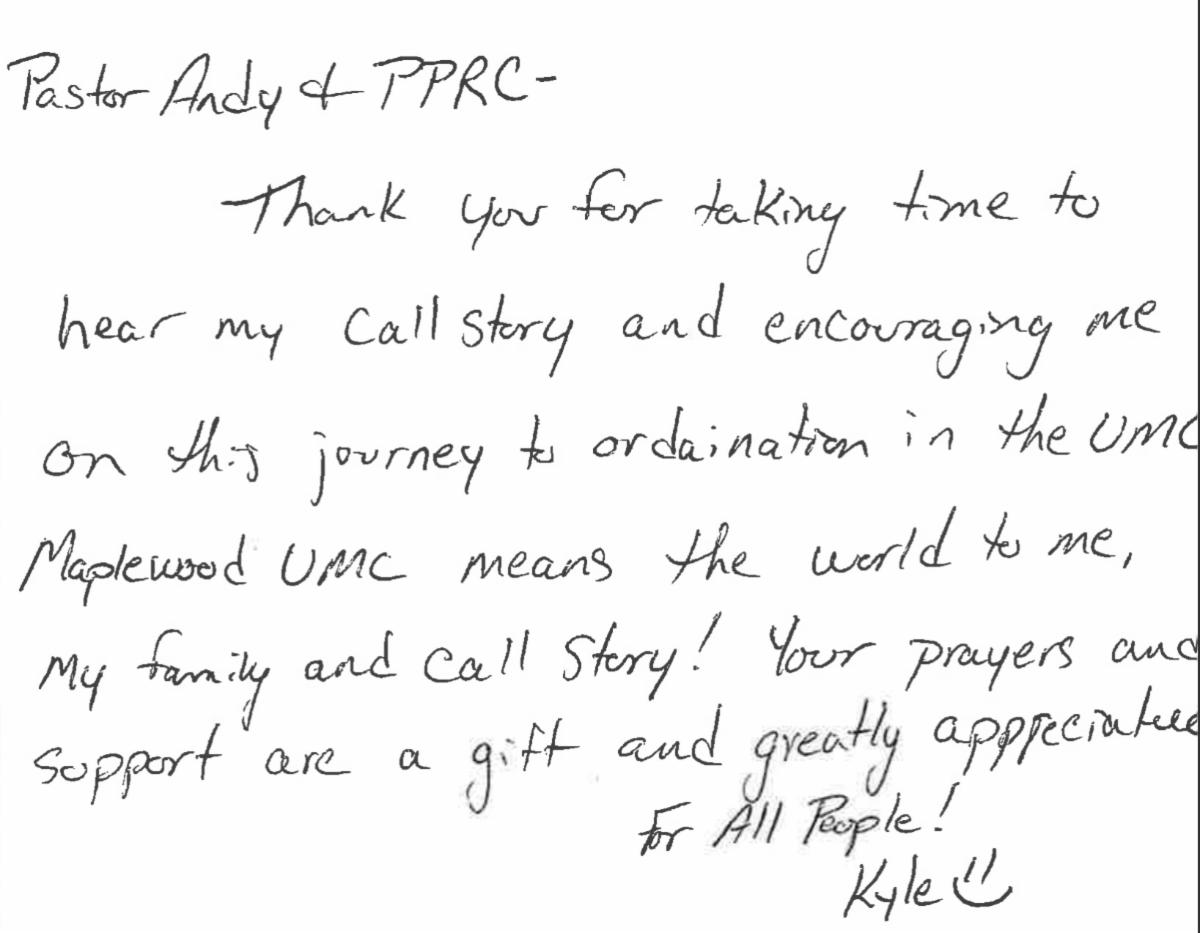 Pastor Andy & PPRC-
Thank you for taking time to
hear my Call Story and encouraging me
on this journey to ordaination in the UMC
Maplewood UMC means the world to me,
My family and Call Story! Your prayers and
support are a gift and greatly
For All People!
Kyle